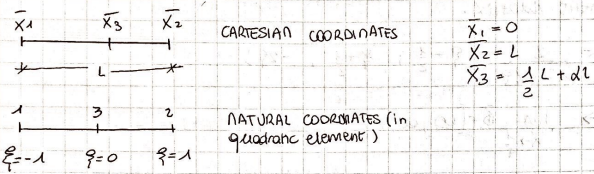 X̄1 X̄3 X̄2
CARTESIAN COORDINATES
L
X̄1 = 0
X̄2 = L
X̄3 = 1/2 L + αL
1 3 2
NATURAL COORDINATES (in
quadratic element)
ξ=-1 ξ=0 ξ=1